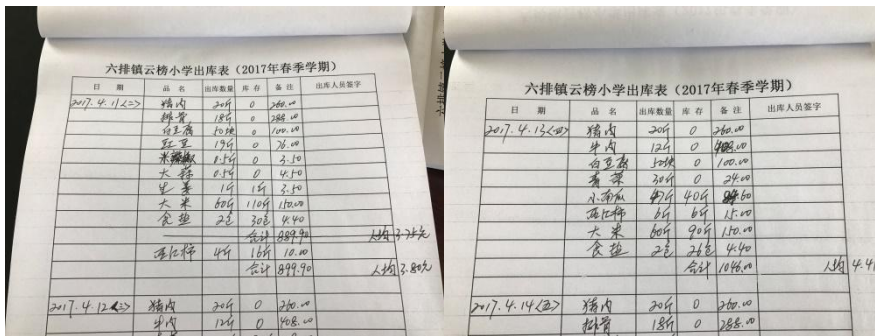 六排镇云榜小学出库表（2017年春季学期）
日 期 品 名 出库数量 库 存 备 注 出库人员签字
2017.4.11<二> 猪肉 20斤 0 260.00
排骨 18斤 0 288.00
白豆腐 50块 0 100.00
豇豆 19斤 0 76.00
0.5斤 0 3.50
大蒜 0.5斤 0 4.50
生姜 1斤 1斤 3.50
大米 60斤 110斤 150.00
食盐 2包 30包 4.40
合计 889.90 人均 3.75元
西红柿 4斤 16斤 10.00
合计 899.90 人均 3.80元
2017.4.12<三> 猪肉 20斤 0 260.00
牛肉 12斤 0 408.00
六排镇云榜小学出库表（2017年春季学期）
日 期 品 名 出库数量 库 存 备 注 出库人员签字
2017.4.13<四> 猪肉 20斤 0 260.00
牛肉 12斤 0 408.00
白豆腐 50块 0 100.00
青菜 30斤 0 24.00
小南瓜 40斤
西红柿 6斤 6斤 15.00
大米 60斤 90斤 150.00
食盐 2包 26包 4.40
合计 1046.00 人均 4.41
2017.4.14<五> 猪肉 20斤 0 260.00
排骨 18斤 0 288.00